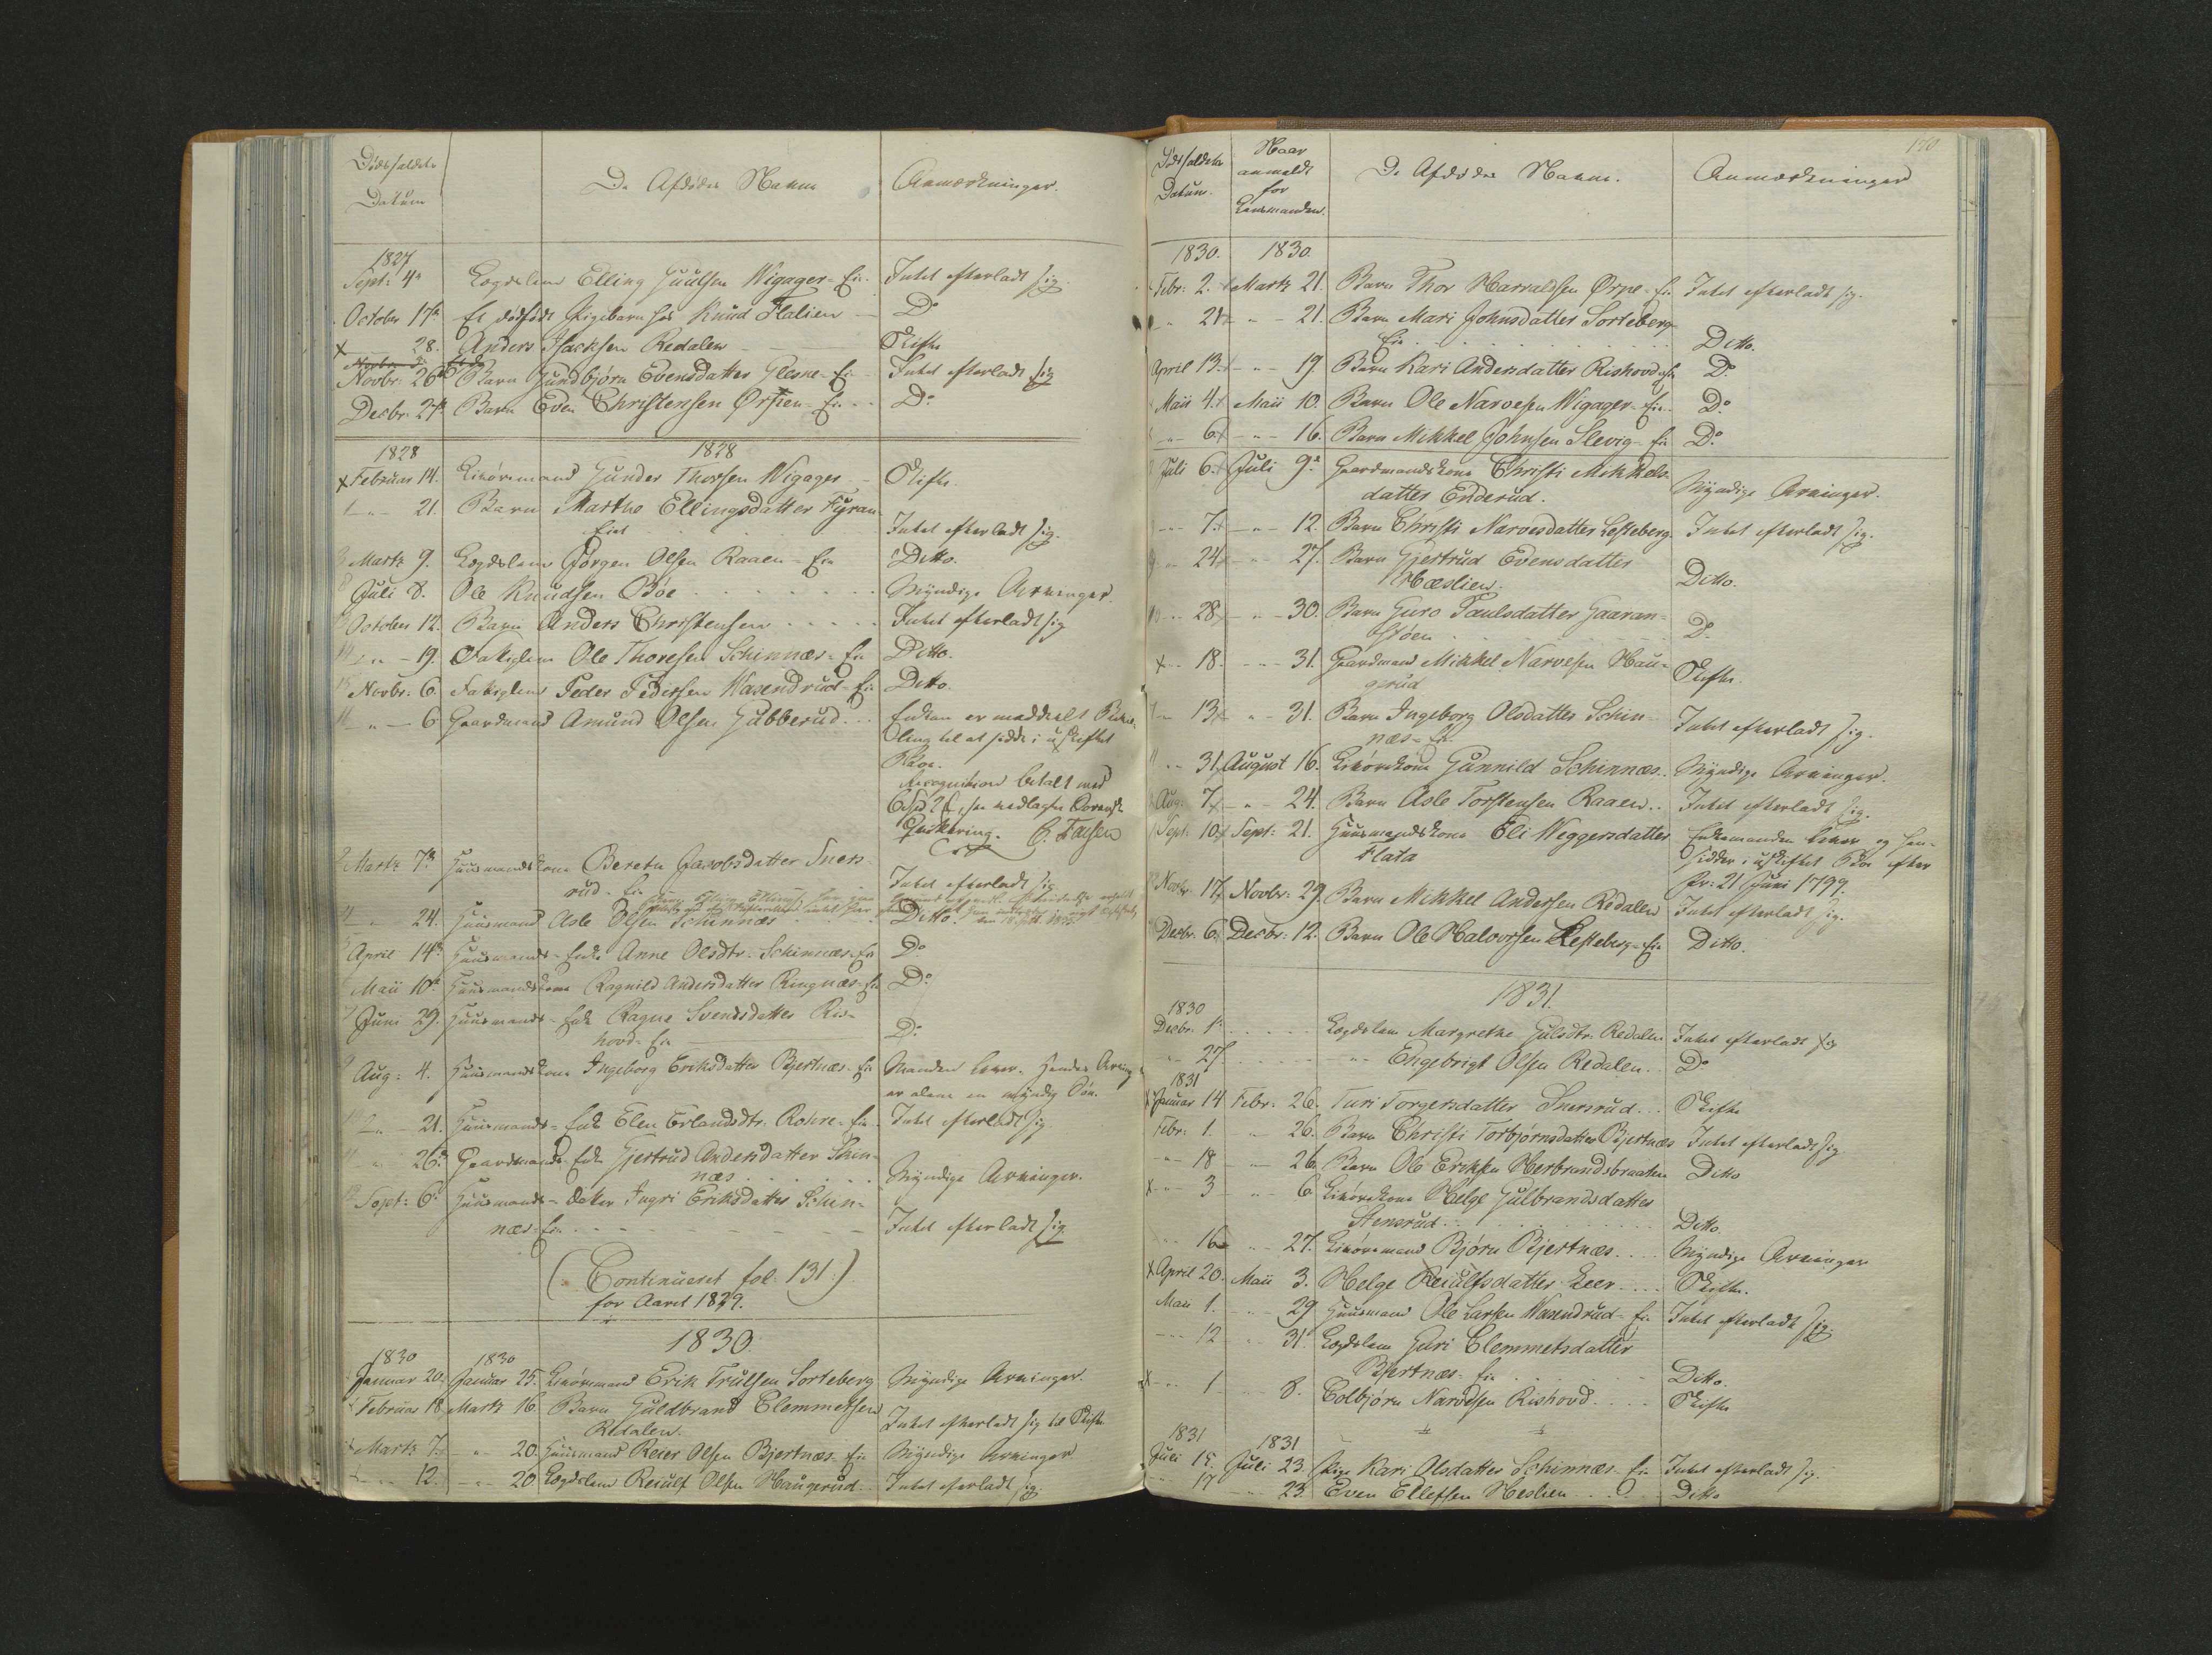 Dødsfaldets
Datum
De Afdødes Navne
Anmærkninger.
1827
Sept: 4de Lægdslem Elling Guulsen Wigager-Eie Intet efterladt sig.
October 17de Et dødfødt Pigebarn hos Knud Flatien Do
28. Anders Isacksen Redalen Skifte
Novbr: 26de Barn Gundbjøra Evensdatter Glesne-Eie Intet efterladt sig
Decbr. 27de Barn Even Christensen Ørpen-Eie Do
1828 1828
Februar 14. Leiørmand Gunder Thorsen Wigager Skifte.
21. Barn Marthe Ellingsdatter Fyran-
Eiet Intet efterladt sig.
Martz 9. Lægdslem Jørgen Olsen Raaen-Eie Ditto.
Juli 8. Ole Knudsen Bøe Myndige Arvinger.
October 12. Barn Anders Christensen Intet efterladt sig
19. Fatiglem Ole Thoresen Schinnæs-Eie Ditto.
Novbr: 6. Fatiglem Peder Pedersen Wasendrud-Eie Ditto.
6 Gaardmand Amund Olsen Gubberud Enken er meddeelt Bevil-
ling til at sidde i uskiftet
Boe.
Recognition betalt med
qvittering.
Martz 7de Huusmandskone Berethe Jacobsdatter Sners-
rud-Eie Intet efterladt sig
24. Huusmand Asle Olsen Schinnæs Ditto.
April 14de Huusmands-Enke Anne Olsdtr. Schinnæs-Eie Do
Maii 10de Huusmandskone Ragnild Andersdatter Ringnæs-Eie Do
Juni 29. Huusmands-Enke Ragne Svendsdatter Ris-
hovd-Eie Do
Aug: 4. Huusmandskone Ingeborg Eriksdatter Bjertnæs-Eie Manden lever. Hendes Arving
er alene en myndig Søn.
21. Huusmands-Enke Elen Erlandsdtr. Rohne-Eie Intet efterladt sig.
26de Gaardmands-Enke Gjertrud Andersdatter Skin-
næs Myndige Arvinger.
Sept: 6te Huusmands-Datter Ingri Eriksdatter Schin-
næs-Eie Intet efterladt sig
(Continueret fol: 131.)
for Aaret 1829.
1830.
1830 1830
Januar 20. Januar 25. Leiørmand Erik Trulsen Sorteberg Myndige Arvinger.
Februar 18. Martz 16. Barn Guldbrand Clemmetsen
Redalen. Intet efterladt sig til Skifte.
Martz 7. 20. Huusmand Reier Olsen Bjertnæs-Eie Myndige Arvinger
12. 20. Lægdslem Reiulf Olsen Haugerud Intet efterladt sig.
130
Dødsfaldets
Datum.
Naar
anmeldt
for
Lensmanden.
De Afdødes Navne.
Anmærkninger
1830. 1830.
Febr: 2. Martz 21. Barn Thor Harraldsen Ørpe-Eie Intet efterladt sig.
21. 21. Barn Mari Johnsdatter Sorteberg-
Eie Ditto.
April 13. 19. Barn Kari Andersdatter Rishovd-Eie Do
Maii 4. Maii 10. Barn Ole Narvesen Wigager-Eie Do
6. 16. Barn Mikkel Johnsen Slevig-Eie Do
Juli 6. Juli 9de Gaardmandskone Christi Mikkels-
datter Enderud. Myndige Arvinger.
7. 12. Barn Christi Narvesdatter Lesteberg. Intet efterladt sig.
24. 27. Barn Gjertrud Evensdatter
Hæslien. Ditto.
28. 30. Barn Guro Paulsdatter Gaaran-
støen Do
18. 31. Gaardmand Mikkel Narvesen Hau-
gerud Skifte.
13. 31. Barn Ingeborg Olsdatter Schin-
næs-Eie Intet efterladt sig.
31. August 16. Leiørskone Gunnild Schinnæs Myndige Arvinger.
Aug: 7. 24. Barn Asle Torstensen Raaen Intet efterladt sig.
Sept: 10. Sept: 21. Huusmandskone Eli Weggersdatter
Flata Enkemanden lever og hen-
sidder i uskiftet Boe efter
Fr: 21 Juni 1799.
Novbr. 17. Novbr: 29. Barn Mikkel Andersen Redalen Intet efterladt sig.
Decbr. 6. Decbr: 12. Barn Ole Halvorsen Lesteberg-Eie Ditto.
1831.
1830
Decbr. 1. Lægdslem Margrethe Gulsdtr: Redalen Intet efterladt sig
27. Engebrigt Olsen Redalen Do
1831
Januar 14 Febr: 26. Turi Torgersdatter Snersrud Skifte
Febr: 1. 26. Barn Christi Torbjørnsdatter Bjertnæs Intet efterladt sig
18 26. Barn Ole Eriksen Herbrandsbraaten Ditto
3 6 Leiørskone Helge Gulbrandsdatter
Stensrud Ditto.
16 27. Leiørmand Bjørn Bjertnæs Myndige Arvinger
April 20. Maii 3. Helge Reiulfsdatter Leer Skifte.
Maii 1. 29 Huusmand Ole Larsen Wasendrud-Eie Intet efterladt sig.
12 31. Lægdslem Guri Clemmetsdatter
Bjertnæs-Eie Ditto.
1 8. Colbjørn Narvesen Rishovd Skifte
1831 1831
Juli 15. Juli 23. Pige Kari Olsdatter Schinnæs-Eie Intet efterladt sig.
17 23. Even Ellefsen Heslien Ditto